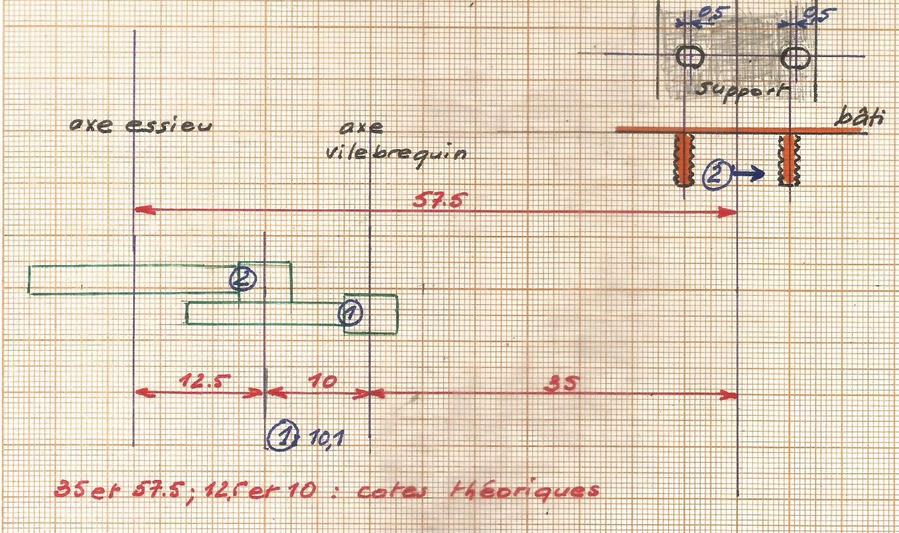 0,5 0,5
support
bâti
axe essieu
axe
vilebrequin
2
57.5
2
1
12.5 10 35
1 10,1
35 et 57.5 ; 12,5 et 10 : cotes théoriques